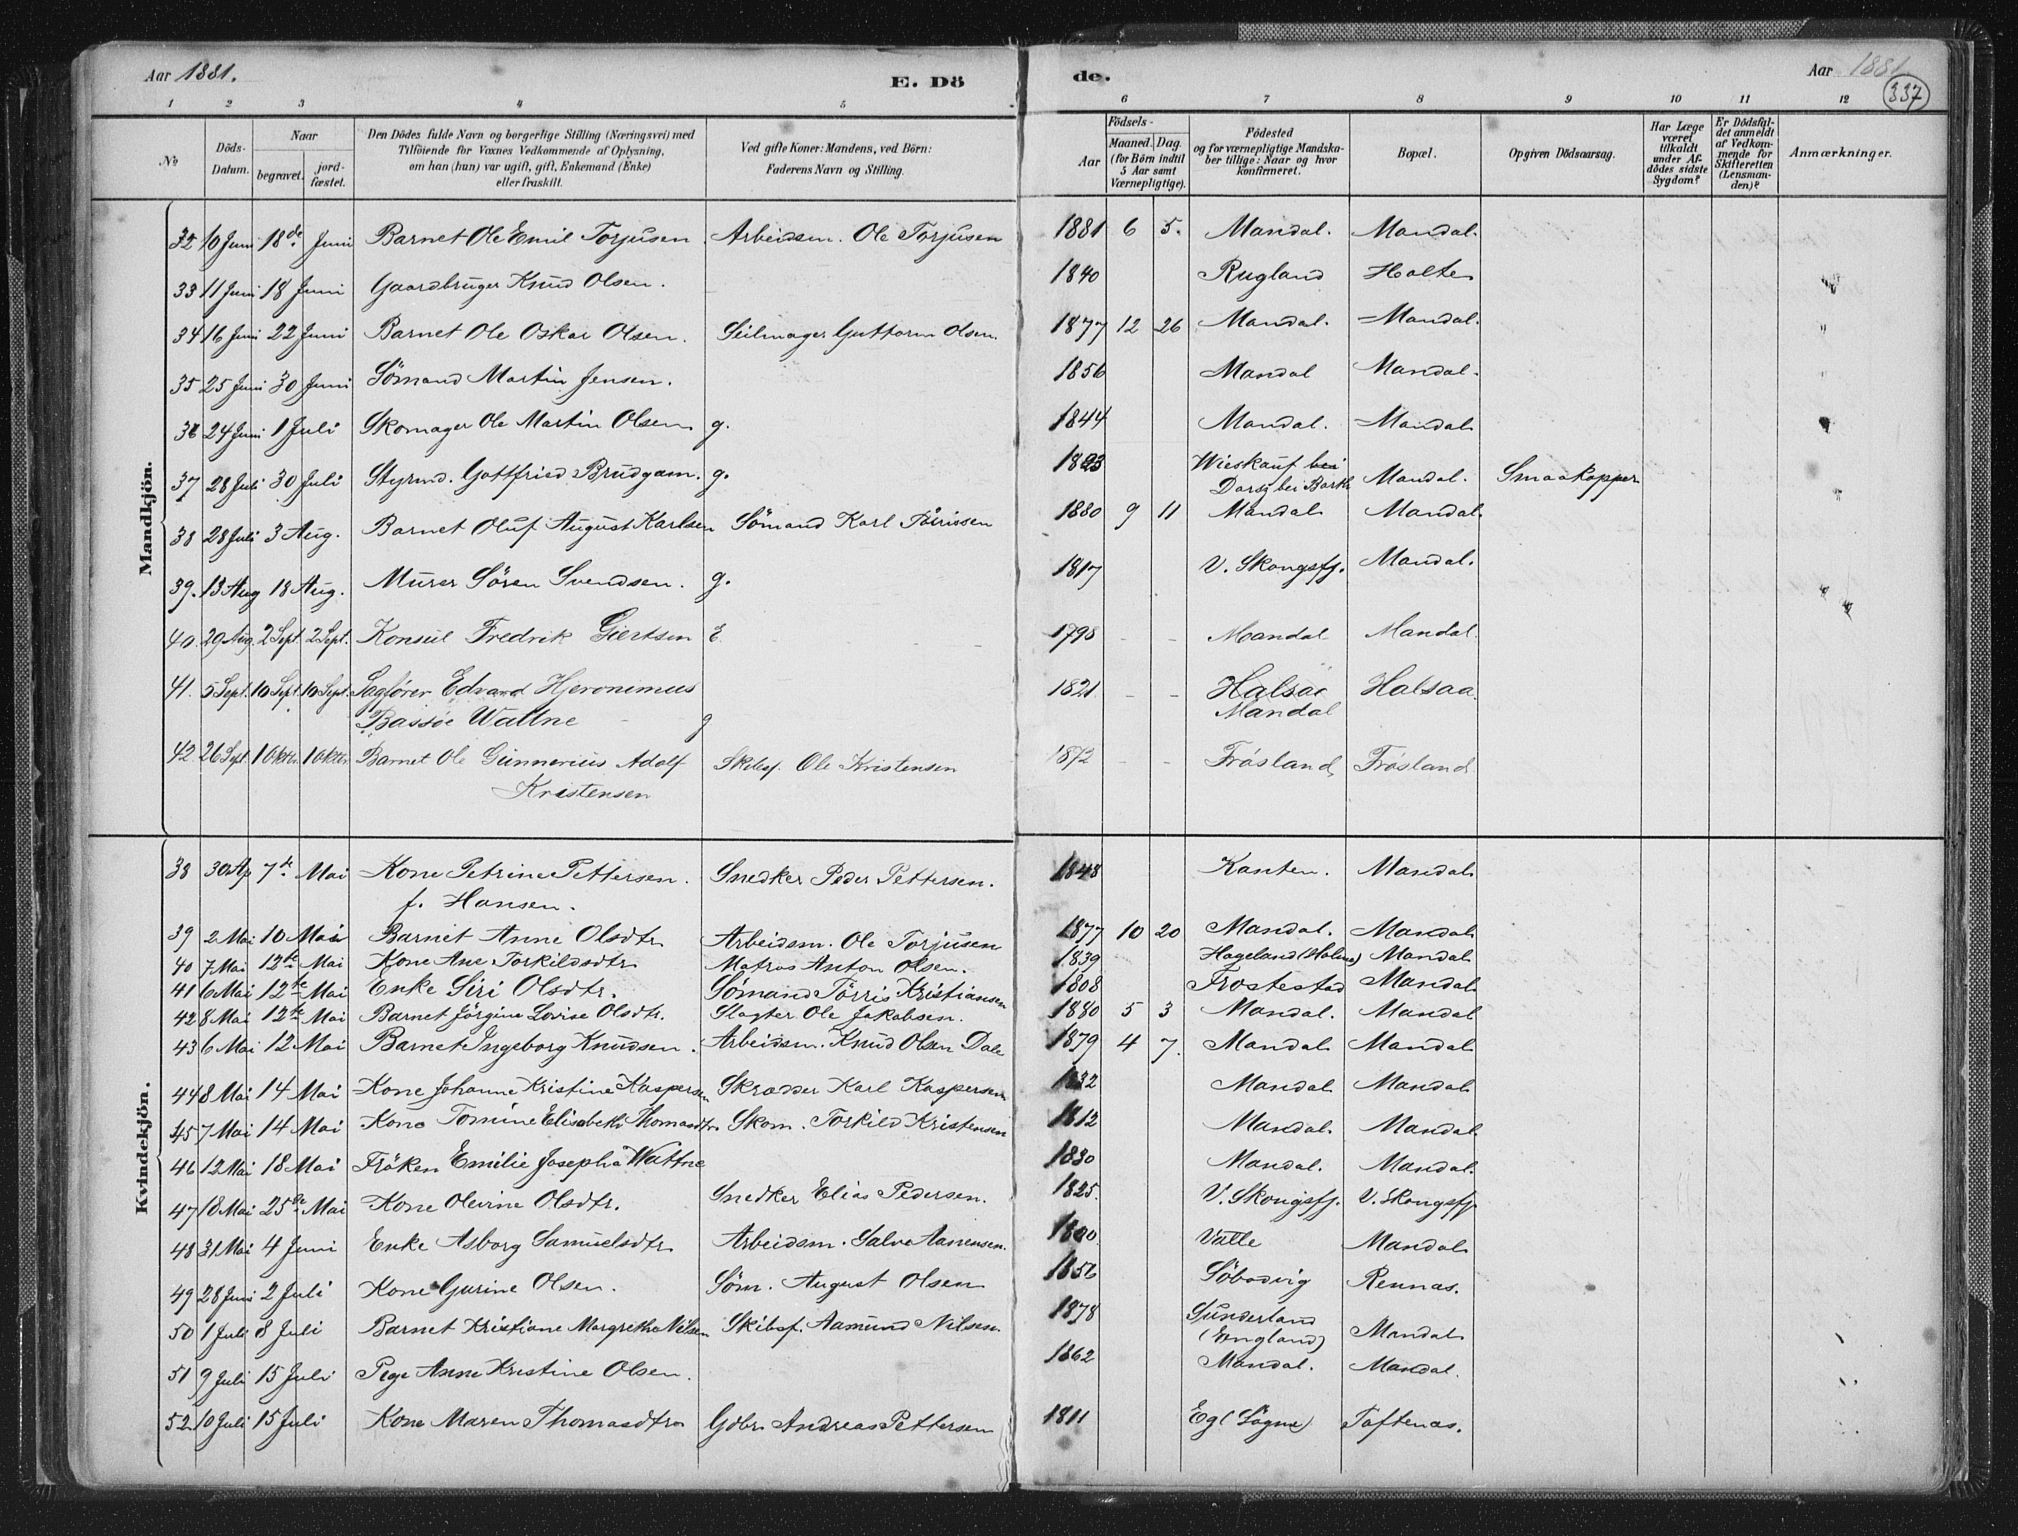 Aar 1881. E. Dö de. Aar 1881
337
1 2 3 4 5 6 7 8 9 10 11 12
№ Döds-Datum. Naar begravet. jord-fæstet. Den Dödes fulde Navn og borgerlige Stilling (Næringsvei) med Tilföiende for Voxnes Vedkommende af Oplysning, om han (hun) var ugift, gift, Enkemand (Enke) eller fraskilt. Ved gifte Koner: Mandens, ved Börn: Faderens Navn og Stilling. Aar Födsels- Maaned. Dag. (for Börn indtil 5 Aar samt Værnepligtige). Födested og for værnepligtige Mandskaber tillige: Naar og hvor konfirmeret. Bopæl. Opgiven Dödsaarsag. Har Læge været tilkaldt under Afdödes sidste Sygdom? Er Dödsfaldet anmeldt af Vedkommende for Skifteretten (Lensmanden)? Anmærkninger.
Mandkjön.
32 10 Juni 18de Juni Barnet Ole Emil Torjusen Arbeidsm. Ole Torjusen 1881 6 5. Mandal. Mandal.
33 11 Juni 18 Juni Gaardbruger Knud Olsen. 1840 Rugland Holte
34 16 Juni 22 Juni Barnet Ole Oskar Olsen. Seilmager Guttorm Olsen. 1877 12 26 Mandal. Mandal.
35 25 Juni 30 Juni Sömand Martin Jensen. 1856 Mandal Mandal.
36 24 Juni 1 Juli Skomager Ole Martin Olsen g. 1844 Mandal. Mandal
37 28 Juli 30 Juli Styrmd. Gottfried Brudgam. g. 1823 Wieskauf bei Mandal. Smaakopper
Darsz bei Barth
38 28 Juli 3 Aug. Barnet Oluf August Karlsen Sömand Karl 1880 9 11 Mandal Mandal.
39. 13 Aug 18 Aug. Murer Sören Svendsen. g. 1817 V. Skongsfj. Mandal.
40. 29 Aug. 2 Sept. 2 Sept. Konsul Fredrik Giertsen E. 1798 - - Mandal Mandal
41. 5 Sept. 10 Sept. 10 Sept. Sagförer Edvard Hjeronimus 1821 - - Halsaa Halsaa
Bassöe Wattne g Mandal
42. 26 Sept. 1 Oktr. 1 Oktr. Barnet Ole Gunnerius Adolf Skibsf. Ole Kristensen 1872 - - Frösland Frösland
Kristensen
Kvindekjön.
38 30 Ap 7de Mai Kone Petrine Pettersen. Snedker Peder Pettersen. 1848 Kanten. Mandal
f. Hansen.
39 2 Mai 10 Mai Barnet Anne Olsdtr Arbeidsm. Ole Torjusen 1877 10 20 Mandal. Mandal
40 7 Mai 12te Mai Kone Ane Torkildsdtr Matros Anton Olsen. 1839 Hageland (Holme) Mandal
41 6 Mai 12te Mai Enke Siri Olsdtr. Sömand Törris Kristiansen 1808 Frostestad Mandal
42 8 Mai 12te Mai Barnet Jörgine Lovise Olsdtr. Slagter Ole Jakobsen. 1880 5 3 Mandal. Mandal
43 6 Mai 12 Mai Barnet Ingeborg Knudsen. Arbeidsm. Knud Olsen Dale 1879 4 7. Mandal Mandal
44 8 Mai 14 Mai Kone Johanne Kristine Kaspersen Skrædder Karl Kaspersen 1832 Mandal Mandal
45 7 Mai 14 Mai Kone Tomine Elisabeth Thomasdtr Skom. Torkild Kristensen 1812 Mandal. Mandal
46 12 Mai 18 Mai Fröken Emilie Josepha Wattne 1830 Mandal. Mandal.
47 18 Mai 25de Mai Kone Olevine Olsdtr. Snedker Elias Pedersen. 1825. V. Skongsfj. V. Skongsfj.
48 31 Mai 4 Juni Enke Asborg Samuelsdtr Arbeidsm. Salve Aanensen. 1800. Valle Mandal
49 28 Juni 2 Juli Kone Gurine Olsen. Söm. August Olsen 1856 Söbodvig Rennas.
50 1 Juli 8 Juli Barnet Kristiane Margrethe Nilsen Skibsf. Aamund Nilsen. 1878 Sunderland Mandal
(England)
51 9 Juli 15 Juli Pige Anne Kristine Olsen. 1862 Mandal. Mandal.
52 10 Juli 15 Juli Kone Maren Thomasdtr Gdbr. Andreas Pettersen 1811 Eg (Sögne) Toftenas.